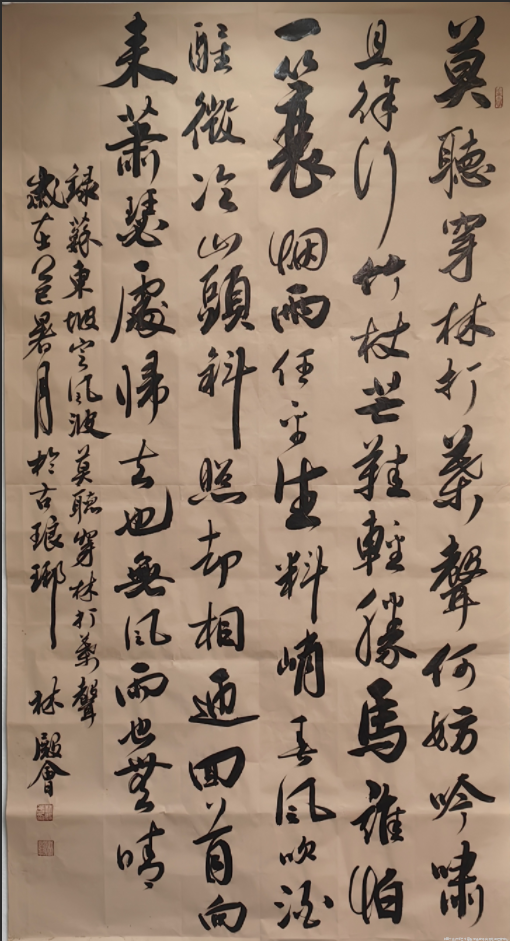 莫聽穿林打葉聲何妨吟嘯
且徐行竹杖芒鞋輕勝馬誰怕
一簑烟雨任平生料峭春風吹酒
醒微冷山頭斜照却相迎回首向
来蕭瑟處歸去也無風雨也無晴
錄蘇東坡定風波莫聽穿林打葉聲
歲在乙巳暑月於古琅琊 林殿會